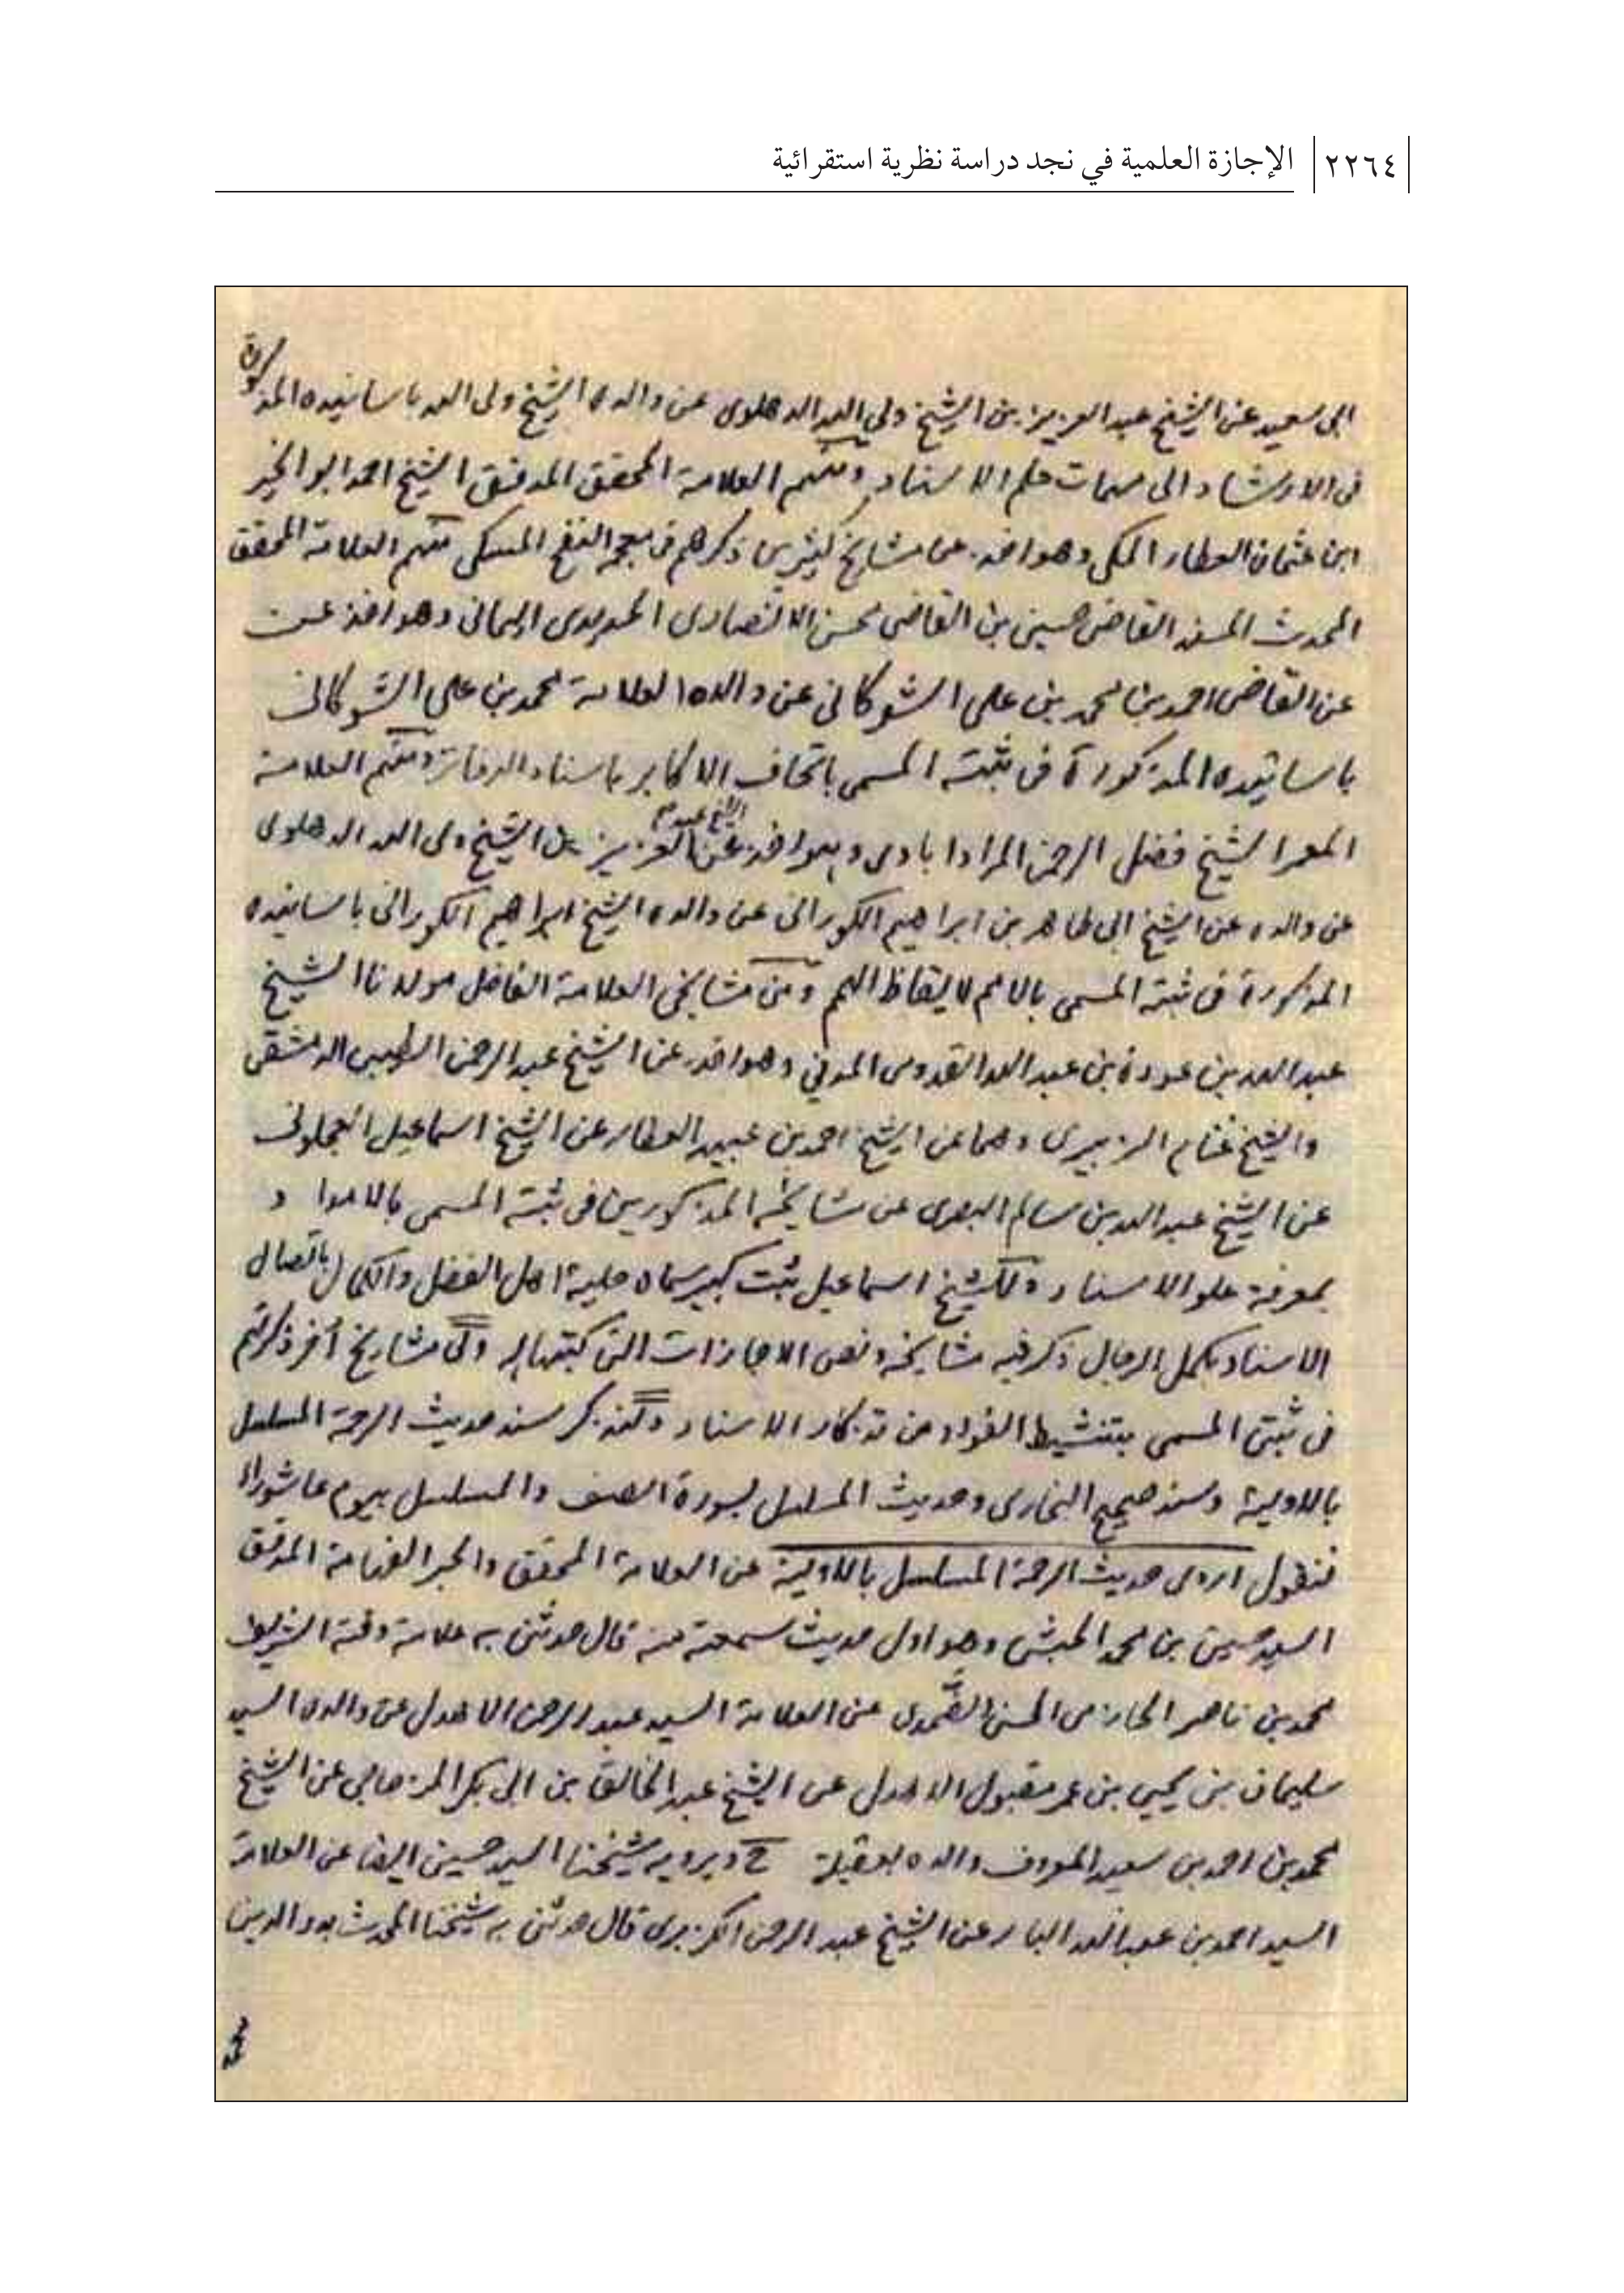 ٢٢٦٤ الإجازة العلمية في نجد دراسة نظرية استقرائية
ابى سعيد عن الشيخ عبد العزيز بن الشيخ ولي الله الدهلوى عن والده الشيخ ولى الله باسانيده المذكورة
فى الارشاد الى مهمات علم الاسناد ومنهم العلامة المحقق المدقق الشيخ احمد ابو الخير
ابن عثمان العطار المكى وهو اخذ عن مشايخ كثيرين ذكرهم فى معجمه النفح المسكى منهم العلامة المحقق
المحدث المسند القاضى حسين بن القاضى محسن الانصارى الحديدى اليمانى وهو اخذ عن
عن القاضى احمد بن محمد بن على الشوكانى عن والده العلامة محمد بن على الشوكانى
باسانيده المذكورة فى ثبته المسمى باتحاف الاكابر باسناد الدفاتر ومنهم العلامة
المعمر الشيخ فضل الرحمن المرادابادى وهو اخذ عن الشيخ عبد العزيز بن الشيخ ولى الله الدهلوى
عن والده عن الشيخ ابى طاهر بن ابراهيم الكورانى عن والده الشيخ ابراهيم الكورانى باسانيده
المذكورة فى ثبته المسمى بالامم لايقاظ الهمم ومن مشايخى العلامة الفاضل مولانا الشيخ
عبد الله بن عودة بن عبد الله القدومى المدني وهو اخذ عن الشيخ عبد الرحمن الطيبى الدمشقى
والشيخ غنام الزبيرى وهما عن الشيخ احمد بن عبيد العطار عن الشيخ اسماعيل العجلونى
عن الشيخ عبد الله بن سالم البصرى عن مشايخه المذكورين فى ثبته المسمى بالامداد
بمعرفة علو الاسناد وللشيخ اسماعيل ثبت كبير سماه حلية اهل الفضل والكمال باتصال
الاسناد بكمل الرجال ذكر فيه مشايخه ونص الاجازات التى كتبتها له ولى مشايخ أخر ذكرتهم
فى ثبتى المسمى بتنشيط الفؤاد من تذكار الاسناد ولنذكر سند حديث الرحمة المسلسل
بالاولية وسند صحيح البخارى وحديث المسلسل بسورة الصف والمسلسل بيوم عاشوراء
فنقول اروى حديث الرحمة المسلسل بالاولية عن العلامة المحقق والحبر الفهامة المدقق
السيد حسين بن محمد الحبشى وهو اول حديث سمعته منه قال حدثنى به علامة وقته الشريف
محمد بن ناصر الحازمى الحسنى الضمدى عن العلامة السيد عبد الرحمن الاهدل عن والده السيد
سليمان بن يحيى بن عمر مقبول الاهدل عن الشيخ عبد الخالق بن ابى بكر المزجاجى عن الشيخ
محمد بن احمد بن سعيد المعروف والده بعقيلة ح ويرويه شيخنا السيد حسين ايضا عن العلامة
السيد احمد بن عبد الله البار عن الشيخ عبد الرحمن الكزبرى قال حدثنى به شيخنا المحدث بدر الدين
محمد